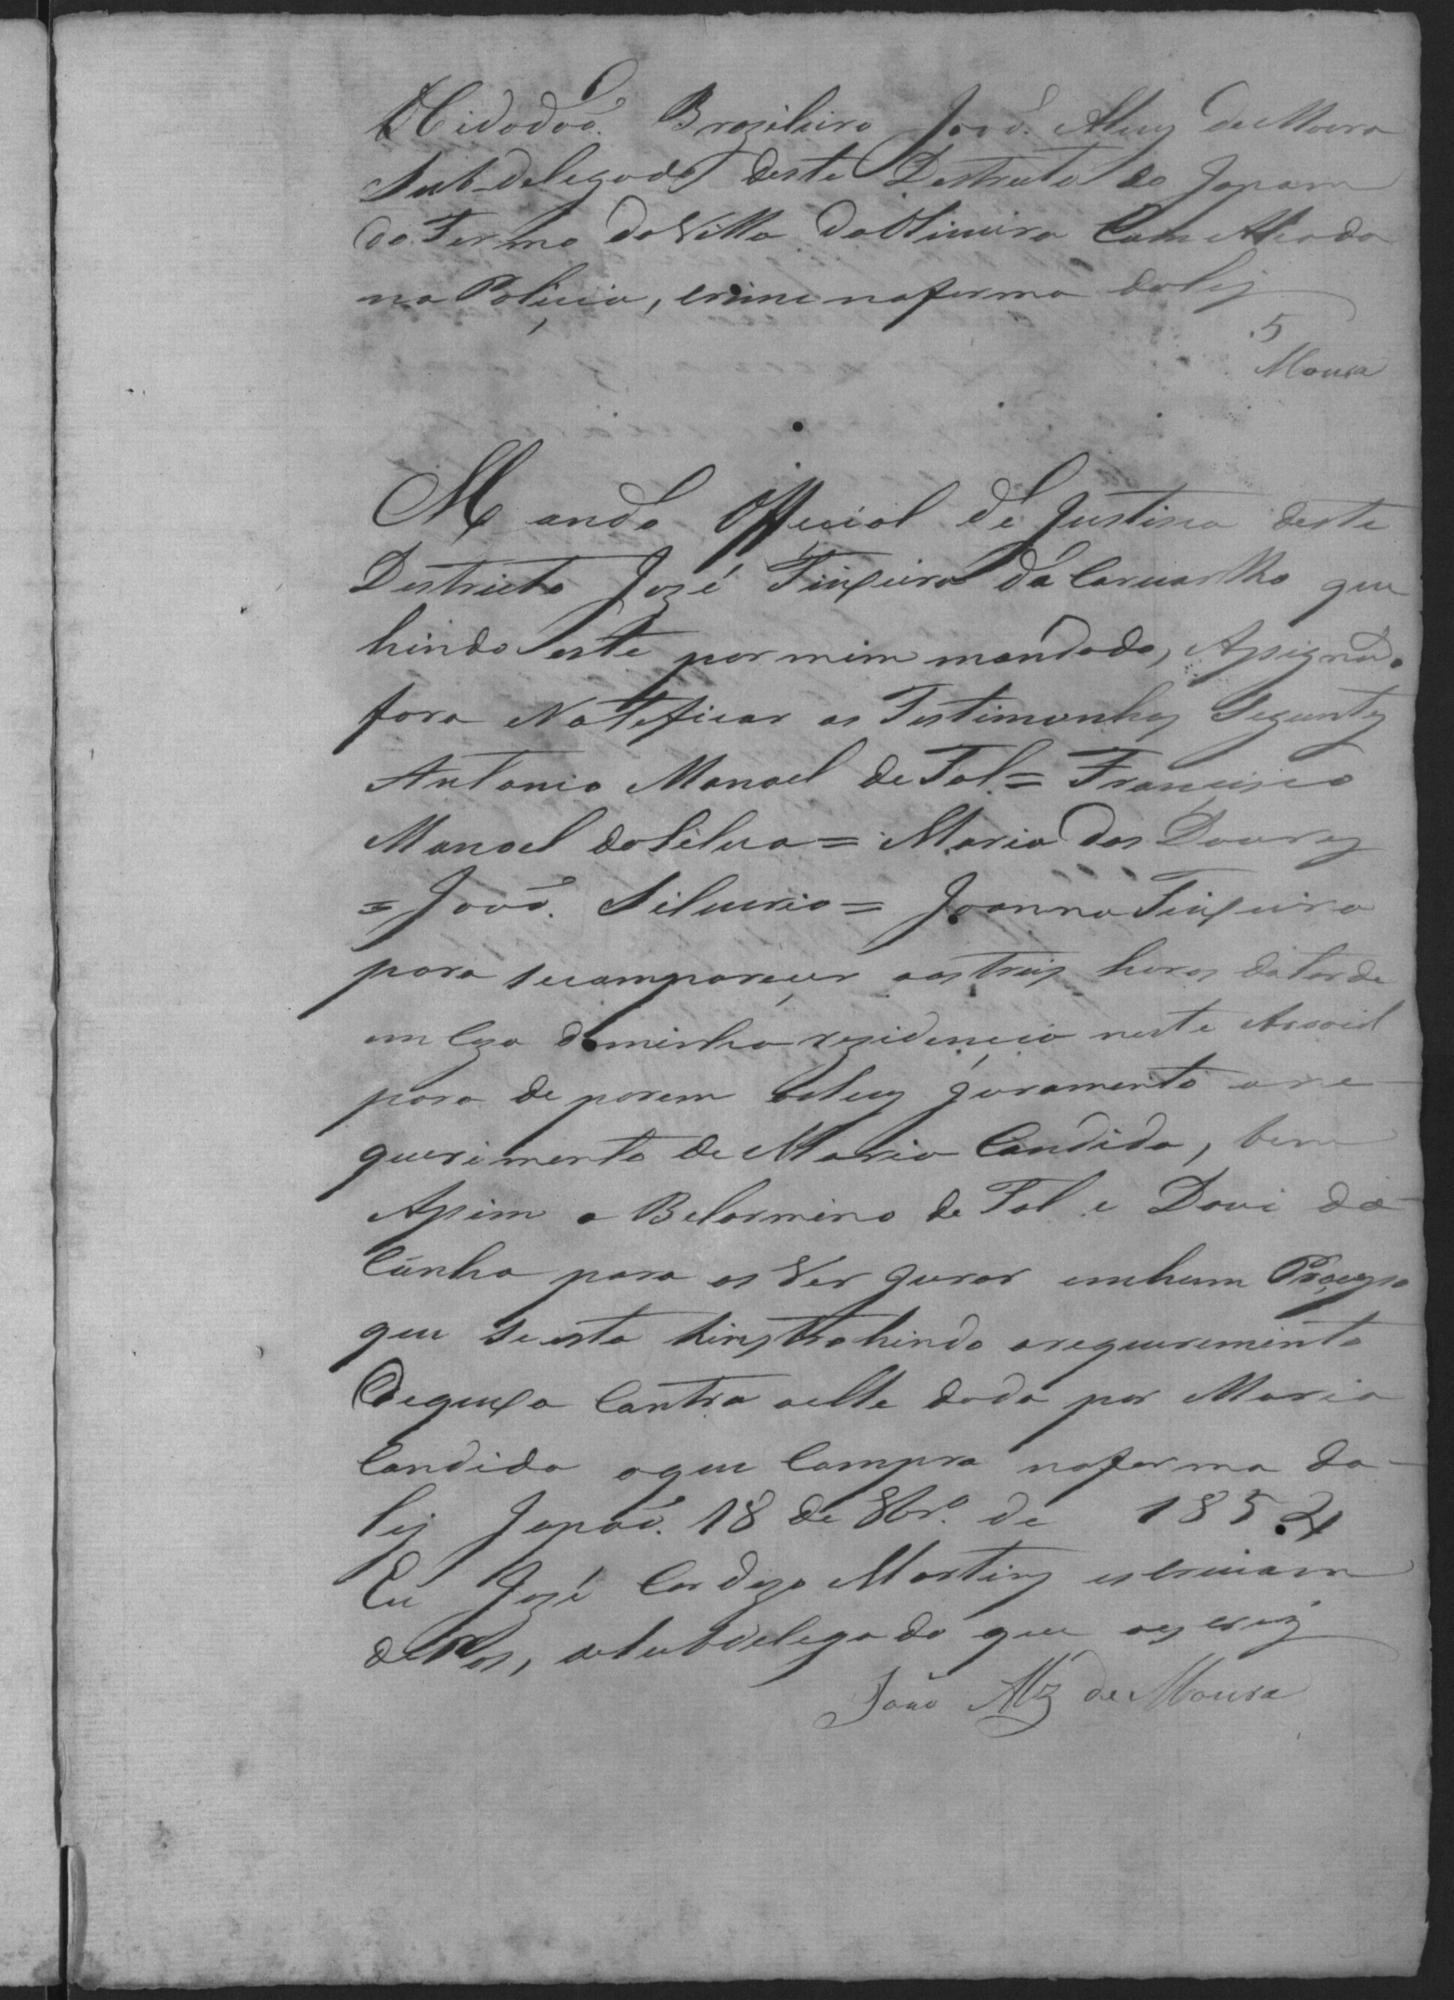 O Cidadaõ Brazileiro Joaõ Alvez de Moura
Subdelegado deste Destrito do Japam
do Termo da Villa da Oliveira Com Alcada
na Policia, crime na forma da lej
5
Moura
Mando Official de Justisa deste
Destricto Jozé Teixeira da Carvarlho que
hindo este por mim mandado, Assignado
fora Noteficar as Testimunhas Seguintes
Antonio Manoel de Tal = Francisco
Manoel da Silva = Maria das Dourez
= Joaõ Silverio = Joanna Teixeira
para se comparecer aas treiz horas da tarde
em Caza de minha rezidencia neste Arraial
para deporem debaixo juramento a re
querimento de Maria Candida, bem
Assim a Belarmino de Tal e Davi da
Cunha para os Ver Jurar em hum Proçesso
que se esta hinstrohindo a requerimento
de queixa Contra aelle dada por Maria
Candida o que Compra na forma da
lej Japaõ 18 de 8br.o de 1854
Eu Jozé Cardozo Martins escrivam
de Pas, e subdelegado que o escrevi
João Alz de Moura